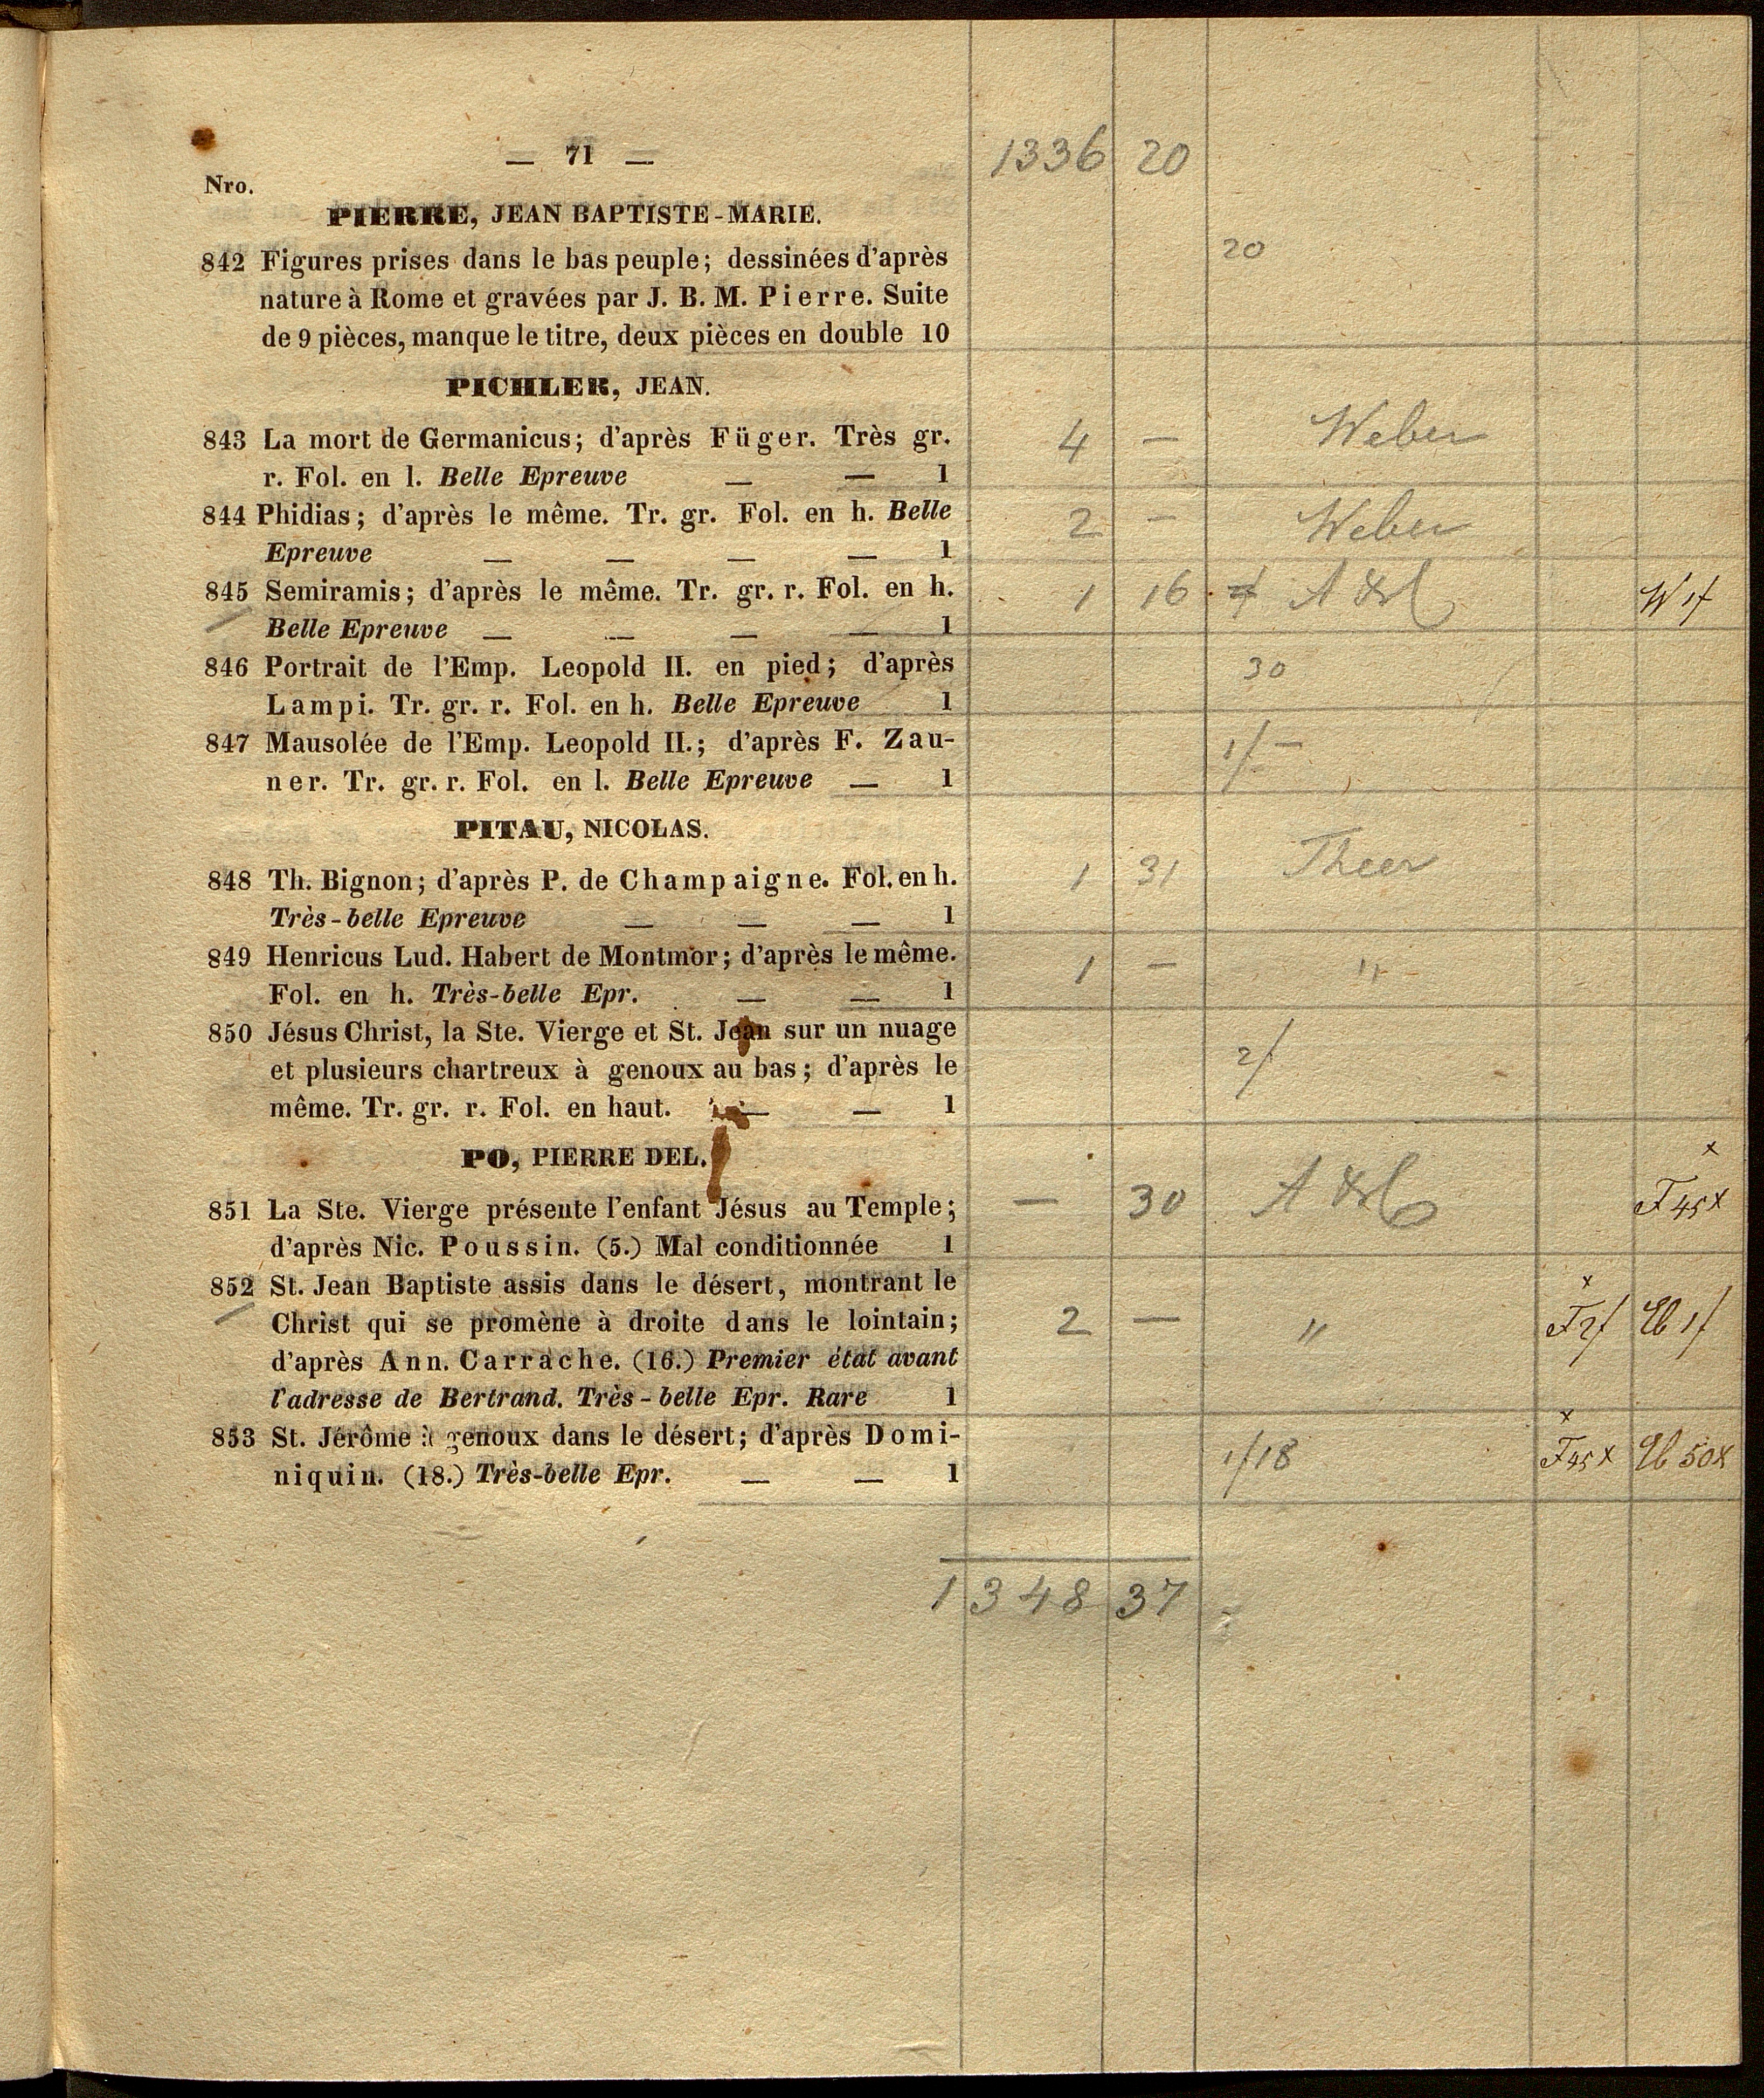 — 71 — 1336 20
Nro.
PIERRE, JEAN BAPTISTE-MARIE.
842 Figures prises dans le bas peuple; dessinées d'après 20
nature à Rome et gravées par J. B. M. Pierre. Suite
de 9 pièces, manque le titre, deux pièces en double 10
PICHLER, JEAN.
843 La mort de Germanicus; d'après Füger. Très gr. 4 — Weber
r. Fol. en l. Belle Epreuve — — 1
844 Phidias; d'après le même. Tr. gr. Fol. en h. Belle 2 — Weber
Epreuve — — — — 1
845 Semiramis; d'après le même. Tr. gr. r. Fol. en h. 1 16 W 1f
Belle Epreuve — — — — 1
846 Portrait de l'Emp. Leopold II. en pied; d'après 30
Lampi. Tr. gr. r. Fol. en h. Belle Epreuve 1
847 Mausolée de l'Emp. Leopold II.; d'après F. Zau- 1/—
ner. Tr. gr. r. Fol. en l. Belle Epreuve — 1
PITAU, NICOLAS.
848 Th. Bignon; d'après P. de Champaigne. Fol. en h. 1 31 Theer
Très-belle Epreuve — — — 1
849 Henricus Lud. Habert de Montmor; d'après le même. 1 — "
Fol. en h. Très-belle Epr. — — 1
850 Jésus Christ, la Ste. Vierge et St. Jean sur un nuage 2/
et plusieurs chartreux à genoux au bas; d'après le
même. Tr. gr. r. Fol. en haut. — — 1
PO, PIERRE DEL. x
851 La Ste. Vierge présente l'enfant Jésus au Temple; — 30 F 45x
d'après Nic. Poussin. (5.) Mal conditionnée 1
852 St. Jean Baptiste assis dans le désert, montrant le x
Christ qui se promène à droite dans le lointain; 2 — " F 2f 1f
d'après Ann. Carrache. (16.) Premier état avant
l'adresse de Bertrand. Très-belle Epr. Rare 1
853 St. Jérôme à genoux dans le désert; d'après Domi- 1/18 x F 45x 50x
niquin. (18.) Très-belle Epr. — — 1
1348 37